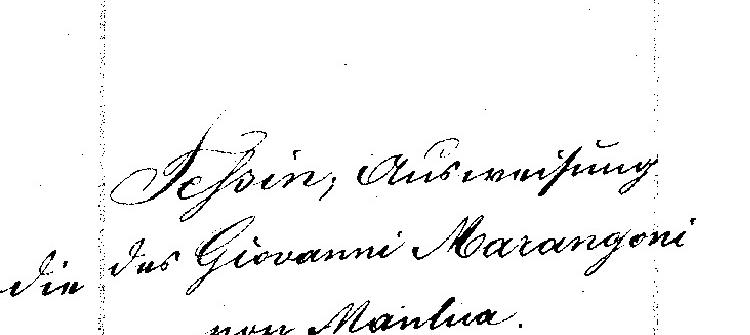 Tessin, Ausweisung
die des Giovanni Marangoni
von Mantua.